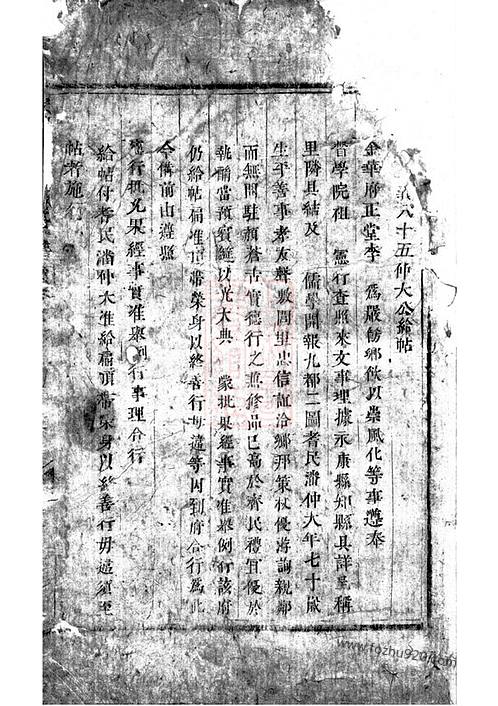 六十五仲大公給帖
金華府正堂李 為嚴飭鄉飲以崇風化等事遵奉
督學院祖 憲行查照來文事理據永康縣知縣具詳呈稱
里隣具結及 儒學開報九都二圖耆民潘仲大年七十歲
生平善事孝友聲敷閭里忠信誼洽鄉邦策杖優游詢親鄰
而無間駐顏蒼古實德行之兼修品已高於齊民禮宜優於
執酳當預賓筵以光大典 蒙批果經事實准舉例行該府
仍給帖稱准頂帶榮身以終善行毋違等因到府合行為此
令備前由遵照
施行抵充果經事實准舉例行事理合行
給帖付耆民潘仲大准給稱頂帶榮身以終善行毋違須至
帖者施行
www.fozhu920.com